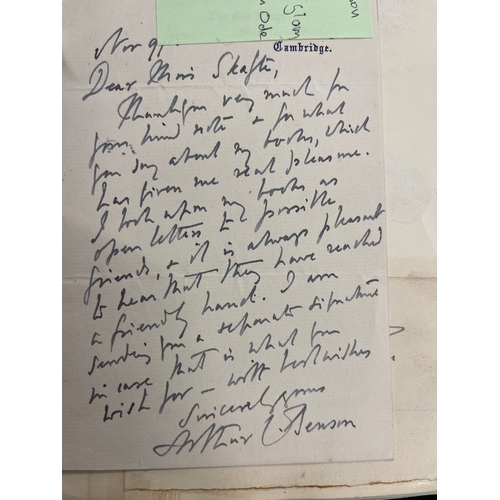 Glori
n Ode
Cambridge.
Nov 9,
Dear Miss Skafte,
Thank you very much for
your kind note & for what
you say about my books, which
has given me real pleasure.
I look upon my books as
open letters to possible
friends, & it is always pleasant
to hear that they have reached
a friendly hand. I am
sending you a separate signature
in case that is what you
wish for – with best wishes
Sincerely yours
Arthur C. Benson